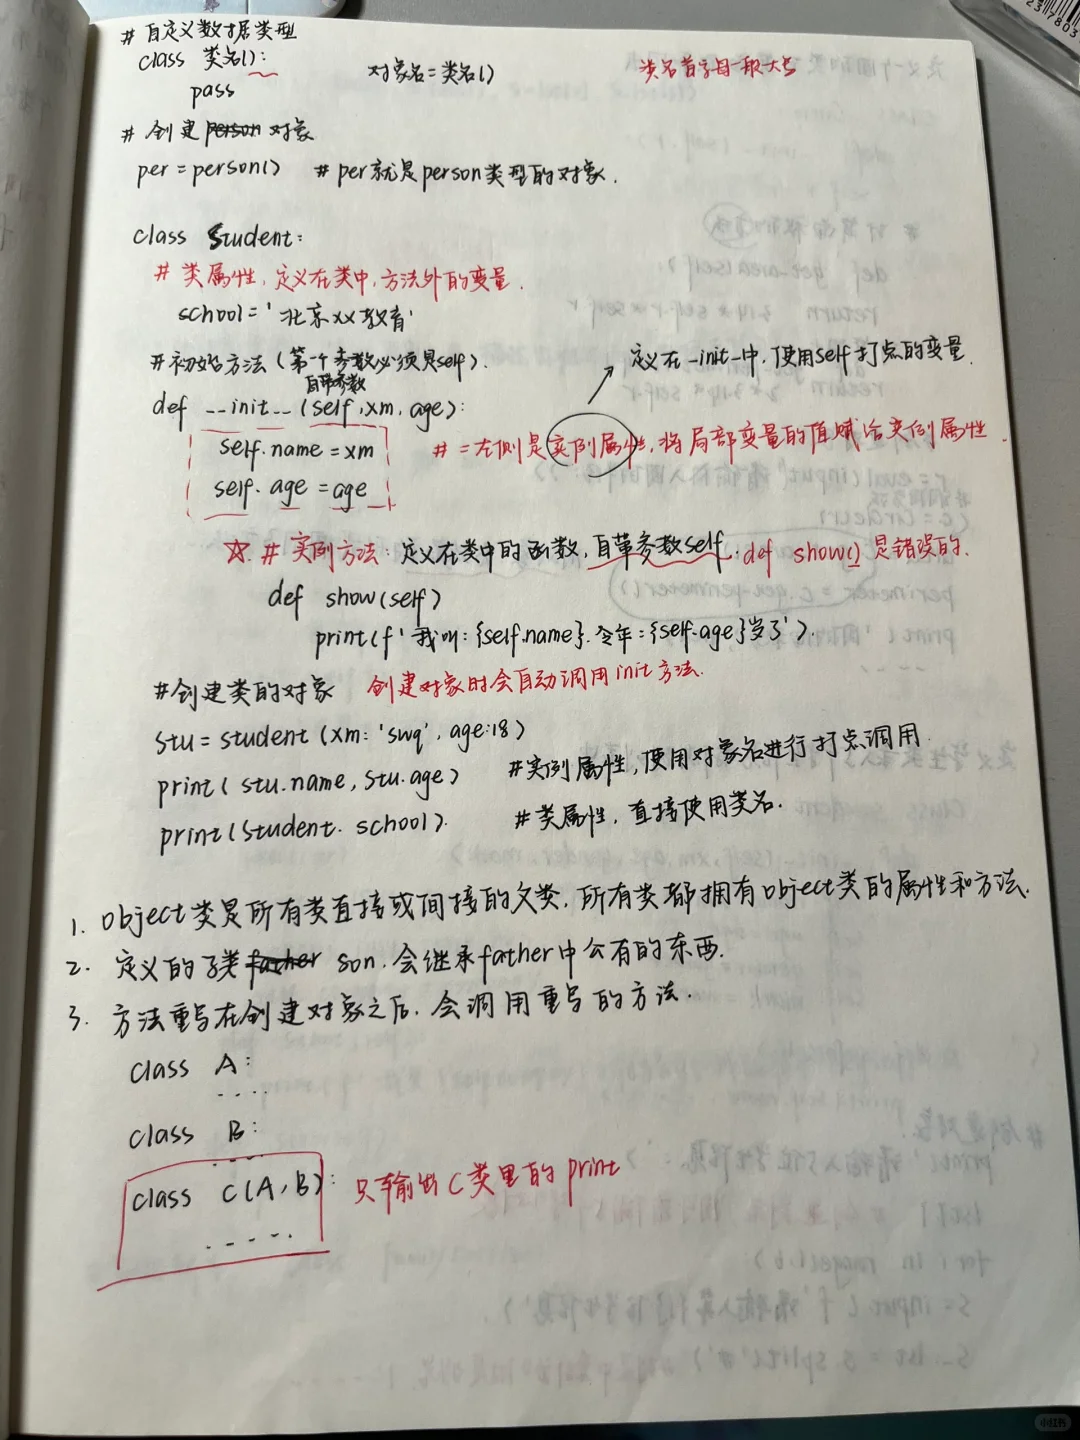 # 自定义数据类型
class 类名():
对象名=类名()
类名首字母一般大写
pass
# 创建person对象
per = person() # per就是person类型的对象.
class Student:
# 类属性,定义在类中,方法外的变量.
school='北京XX教育'
#初始方法(第一个参数必须是self).
自带参数
定义在-init-中,使用self打点的变量.
def __init__(self,xm,age):
self.name=xm
# =左侧是实例属性,将局部变量的值赋给实例属性.
self.age=age
☆ # 实例方法:定义在类中的函数,自带参数self. def show()是错误的.
def show(self)
print(f'我叫:{self.name}.今年:{self.age}岁了').
#创建类的对象 创建对象时会自动调用init方法.
stu=student(xm:'swq',age:18)
print(stu.name,stu.age) #实例属性,使用对象名进行打点调用.
print(Student.school). #类属性,直接使用类名.
1. object类是所有类直接或间接的父类.所有类都拥有object类的属性和方法.
2. 定义的子类father son.会继承father中公有的东西.
3. 方法重写在创建对象之后.会调用重写的方法.
class A:
.....
class B:
.....
class C(A,B): 只输出C类里的print
.....
小红书